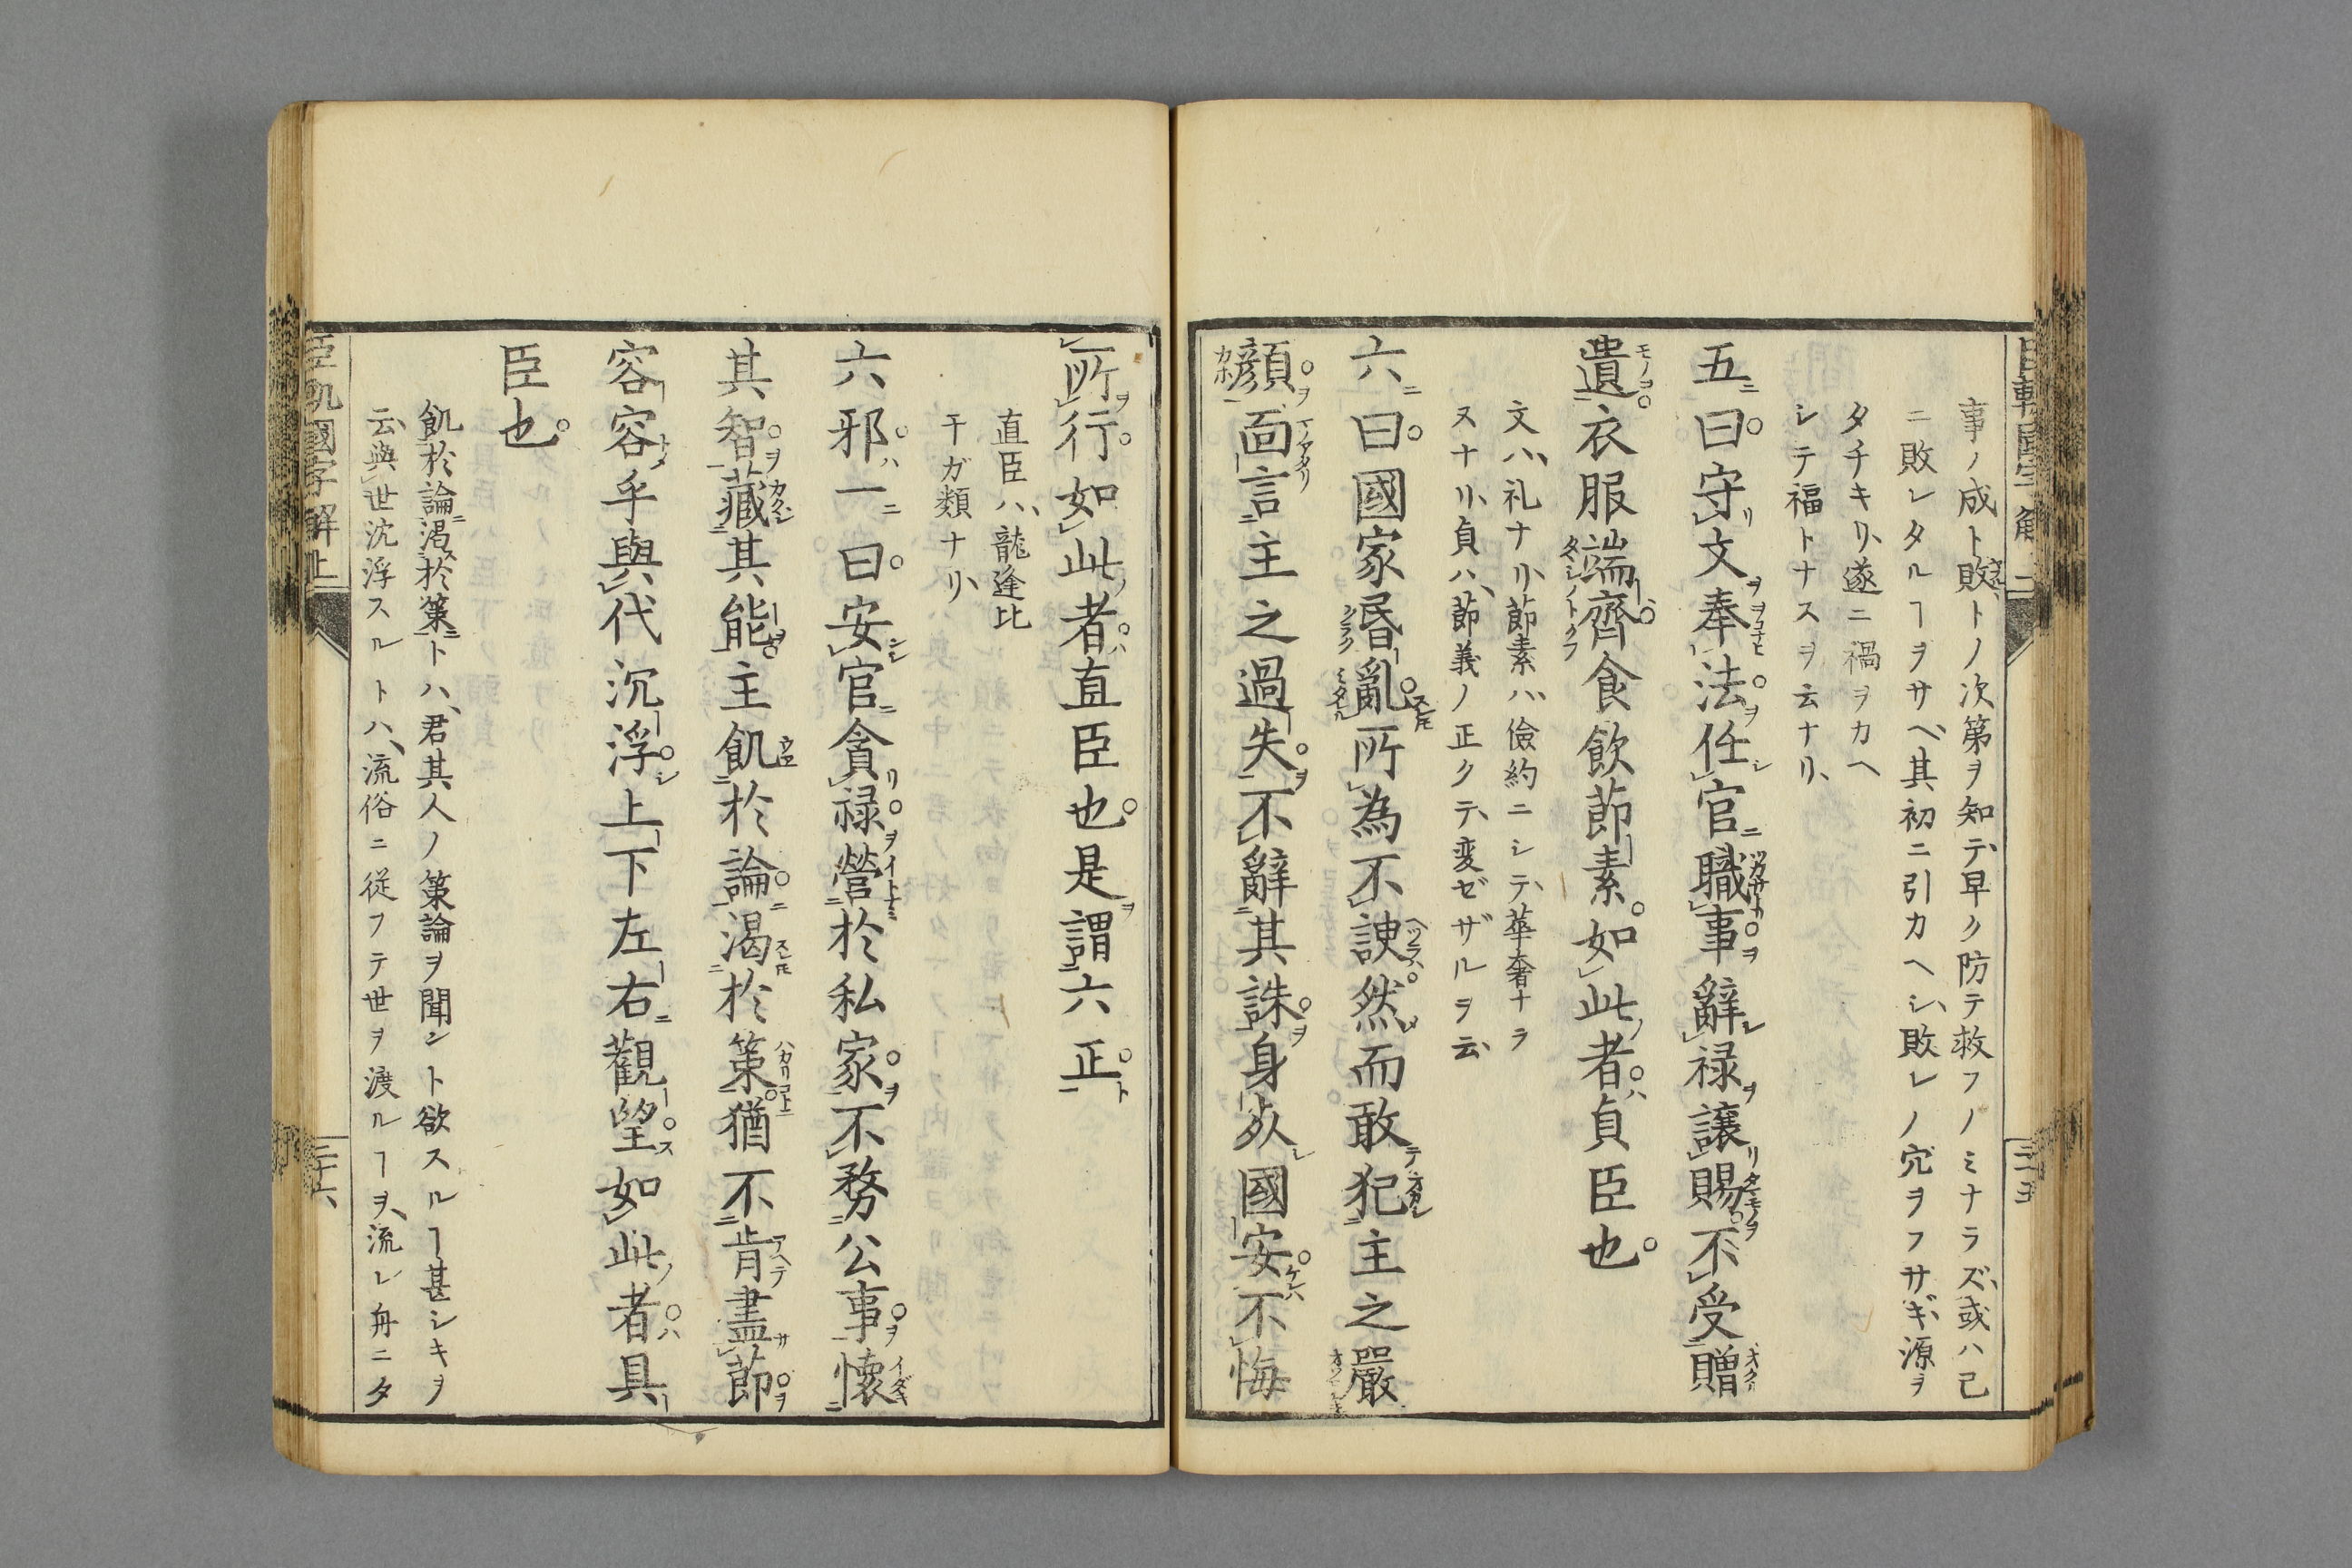 事ノ成ト敗トノ次第ヲ知テ、早ク防テ救フノミナラズ、或ハ已
ニ敗レタルヿヲサヘ、其初ニ引カヘシ、敗レノ穴ヲフサギ、源ヲ
タチキリ、遂ニ禍ヲカヘ
シテ福トナスヲ云ナリ、
五曰守文奉法任官職事辭禄讓賜不受贈
遺衣服端齊食飲節素如此者貞臣也
文ハ、礼ナリ、節素ハ、儉約ニシテ、華奢ナラ
ヌナリ、貞ハ、節義ノ正クテ、変ゼザルヲ云、
六曰國家昬亂所為不諛然而敢犯主之嚴
顔面言主之過失不辭其誅身死國安不悔
所行如此者直臣也是謂六正
直臣ハ、龍逢比
干ガ類ナリ、
六邪一曰安官貪禄營於私家不務公事懐
其智藏其能主飢於論渇於策猶不肯盡節
容容乎與代沉浮上下左右觀望如此者具
臣也
飢於論渇於策トハ、君其人ノ策論ヲ聞ント欲スルヿ甚シキヲ
云、與世沈浮スルトハ、流俗ニ従フテ世ヲ渡ルヿヲ、流レ舟ニタ
臣軌國字解上
三十六